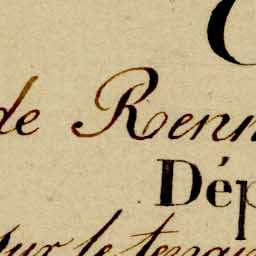 C
de Renn
Dép
sur le terrain